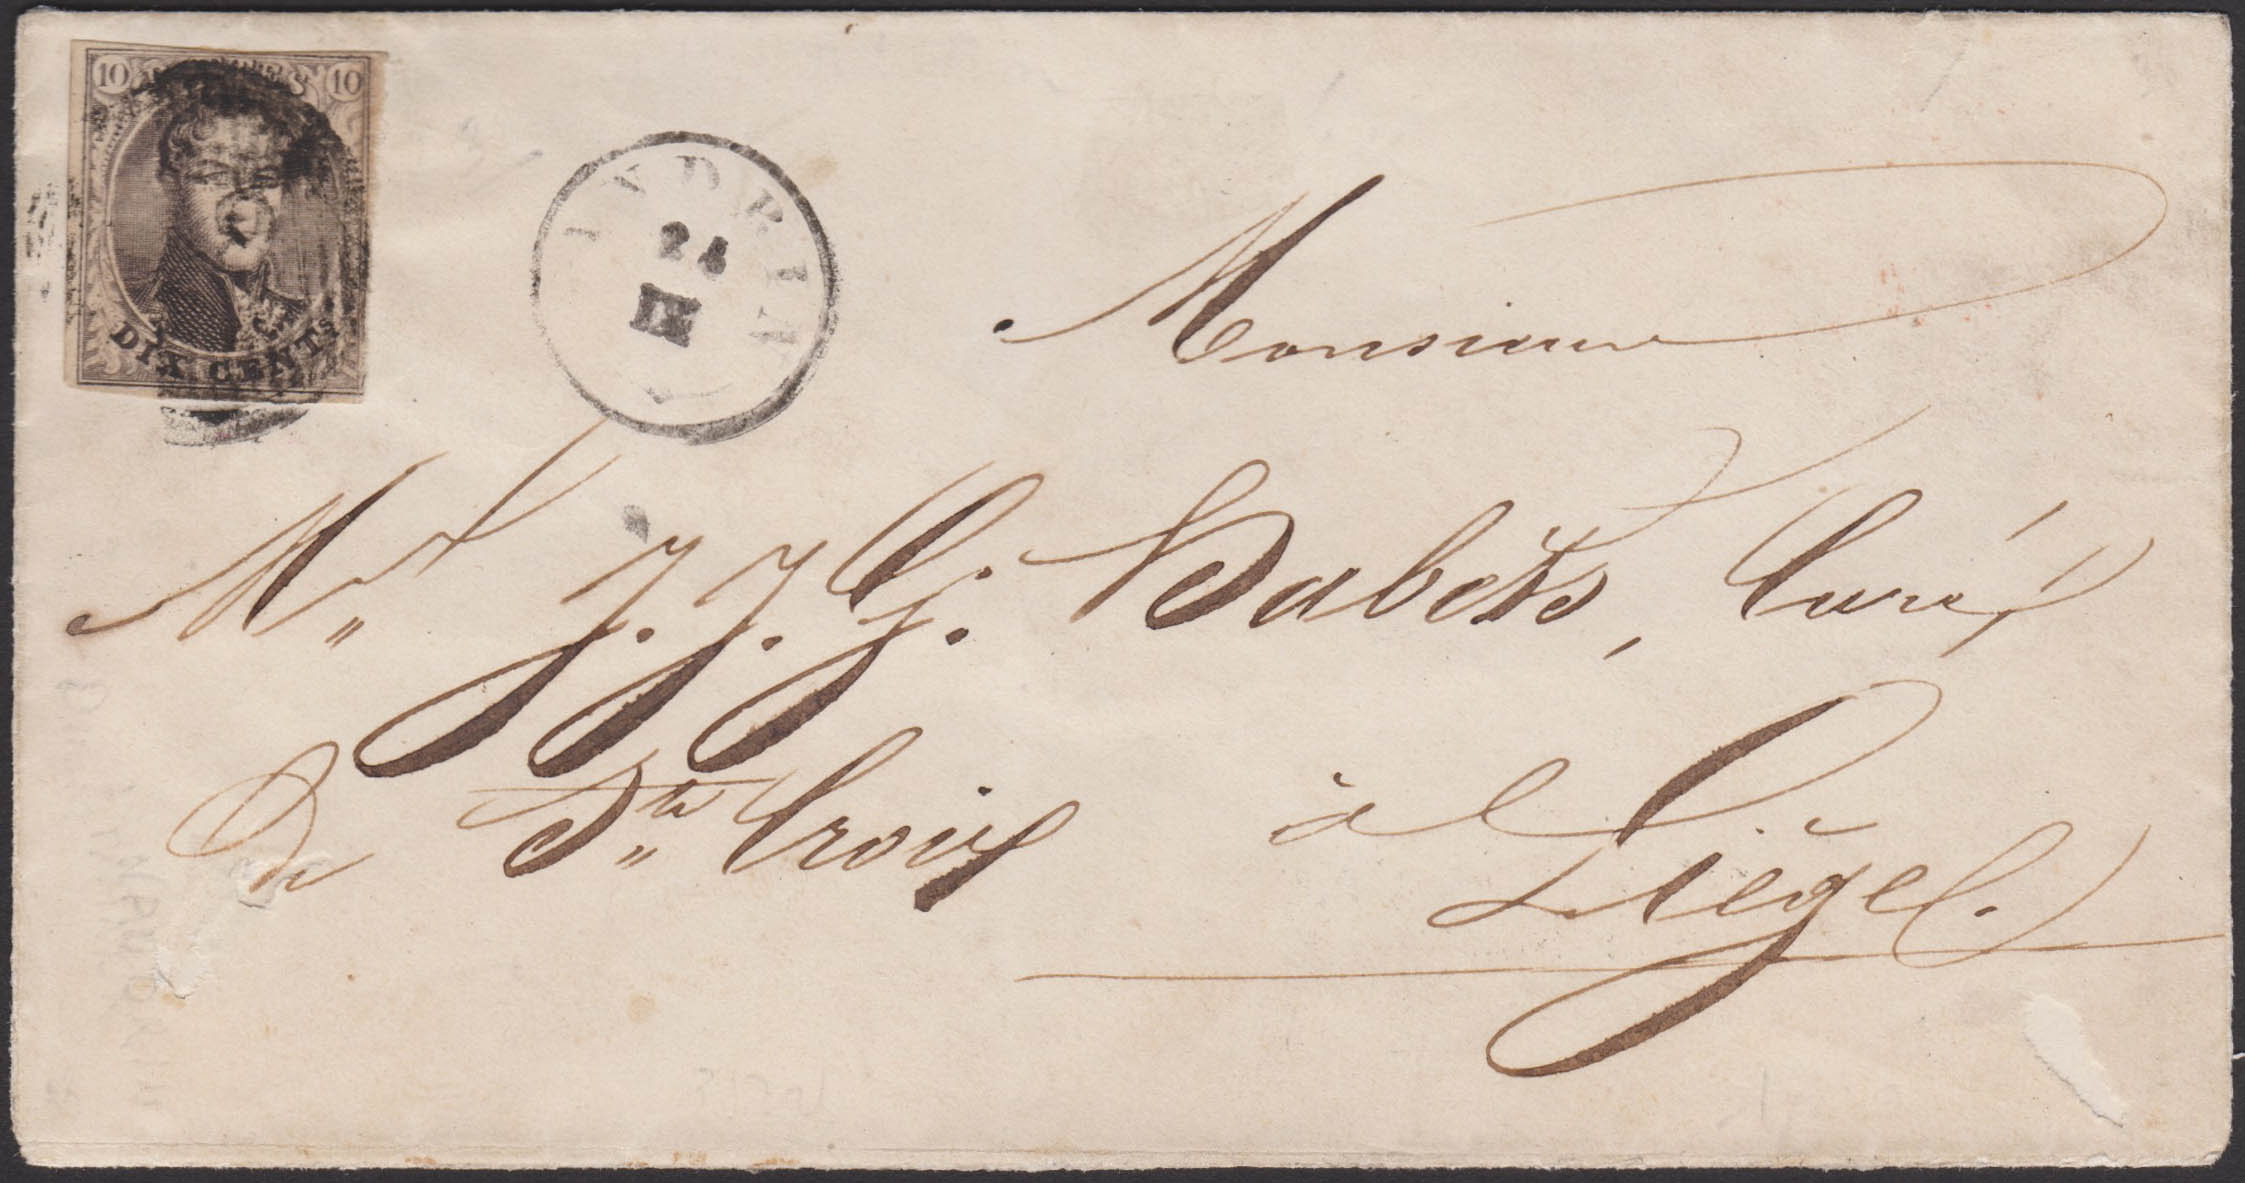 10 10
DIX CENTS
ANDRIN
24
IX
Monsieur
Mr J. J. G. Habets, Curé
De Ste Croix à Liége.